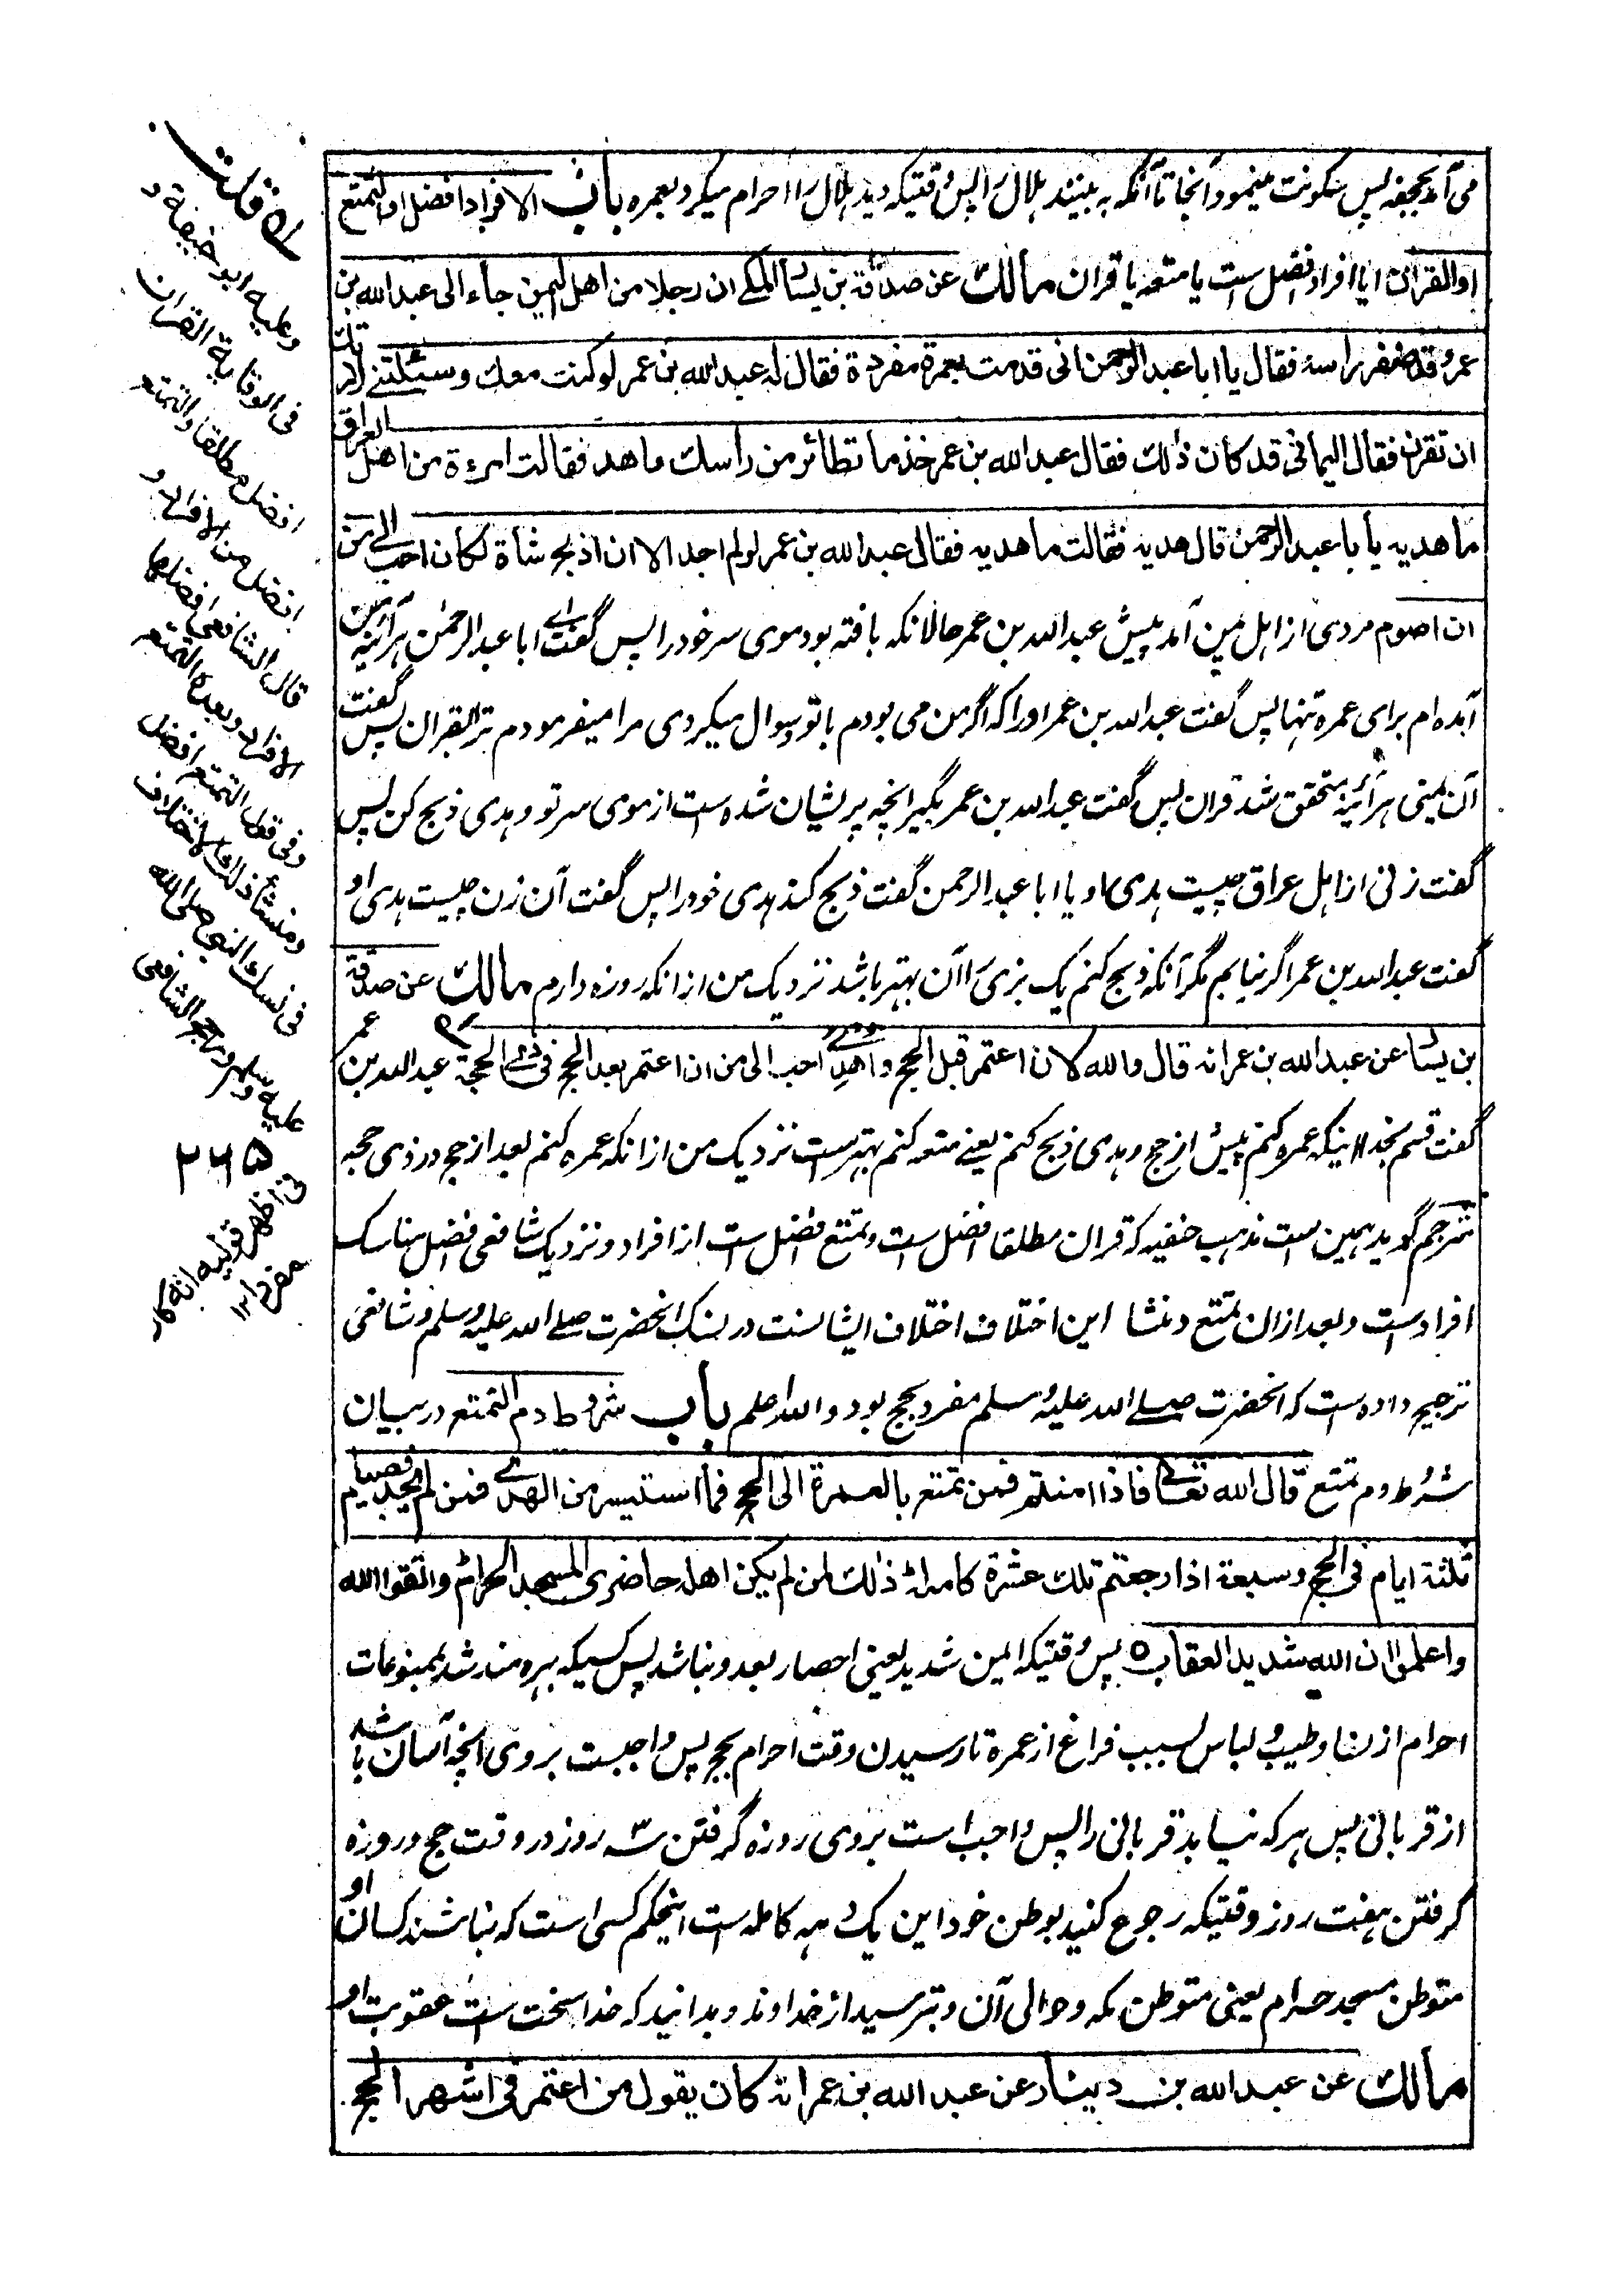 می‌آمد بجحفه پس سکونت مینمود آنجا تا آنکه به بیند هلال را پس وقتیکه دید هلال را احرام میکرد بعمره باب الافراد افضل او التمتع
او القران ایا افراد افضل ست یا متعه یا قران مالك عن صدقة بن یسار المکے ان رجلا من اهل الیمن جاء الی عبد الله بن
عمر وقد ضفر راسه فقال یا ابا عبد الرحمن انی قدمت بعمرة مفردة فقال له عبد الله بن عمر لو کنت معك وسئلتنے لامرتك
ان تقرن فقال الیمانی قد کان ذلك فقال عبد الله بن عمر خذ ما تطائر من رأسك واهد فقالت امرءة من اهل العراق
ما هدیه یا با عبد الرحمن قال هدیه فقالت ما هدیه فقال عبد الله بن عمر لو لم اجد الا ان اذبح شاة لکان احب الے من
ان اصوم مردی از اهل یمن آمد پیش عبد الله بن عمر حالانکه بافته بود موی سر خود را پس گفت اے ابا عبد الرحمن هر آئینه من
آمده ام برای عمره تنها پس گفت عبد الله بن عمر او را که اگر من می بودم با تو و سوال میکردی مرا میفرمودم ترا بقران پس گفت
آن یمنی هر آئینه متحقق شد قران پس گفت عبد الله بن عمر بگیر انچه پریشان شده ست از موی سر تو و هدی ذبح کن پس
گفت زنی از اهل عراق چیست هدی او یا ابا عبد الرحمن گفت ذبح کند هدی خود را پس گفت آن زن چیست هدی او
گفت عبد الله بن عمر اگر نیابم مگر آنکه ذبح کنم یک بزی را آن بهتر باشد نزدیک من از انکه روزه دارم مالك عن صدقة
بن یسار عن عبد الله بن عمر انه قال والله لان اعتمر قبل الحج واهدی احب الی من ان اعتمر بعد الحج فی ذی الحجة عبد الله بن عمر
گفت قسم بخدا اینکه عمره کنم پیش از حج و هدی ذبح کنم یعنے متعه کنم بهتر ست نزدیک من از انکه عمره کنم بعد از حج در ذی حجه
مترجم گوید همین ست مذهب حنفیه که قران مطلقا افضل ست و تمتع افضل ست از افراد و نزدیک شافعی افضل مناسک
افراد ست و بعد از ان تمتع و منشا این اختلاف اختلاف ایشانست در نسک انحضرت صلے الله علیه وسلم و شافعی
ترجیح داده ست که انحضرت صلے الله علیه وسلم مفرد بحج بود والله اعلم باب شروط دم التمتع در بیان
شروط دم تمتع قال الله تعالے فاذا امنتم فمن تمتع بالعمرة الی الحج فما استیسر من الهدی فمن لم یجد فصیام
ثلثة ایام فی الحج وسبعة اذا رجعتم تلك عشرة کاملة ذلك لمن لم یکن اهله حاضری المسجد الحرام واتقوا الله
واعلموا ان الله شدید العقاب ٥ پس وقتیکه ایمن شدید یعنی احصار بعد و نباشد پس کسیکه بهره مند شد بممنوعات
احرام از نسا و طیب و لباس بسبب فراغ از عمره تا رسیدن وقت احرام بحج پس واجبست بر وی انچه آسان باشد
از قربانی پس هر که نیابد قربانی را پس واجب است بر وی روزه گرفتن سه روز در وقت حج و روزه
گرفتن هفت روز وقتیکه رجوع کنید بوطن خود این یک دهه کامله ست اینحکم کسی است که نباشند کسان او
متوطن مسجد حرام یعنی متوطن مکه و حوالی آن و بترسید از خداوند و بدانید که خدا سخت ست عقوبت او
مالك عن عبد الله بن دینار عن عبد الله بن عمر انه کان یقول من اعتمر فی اشهر الحج
قلت
وعلیه ابو حنیفة و
فی الوقایة القران
افضل مطلقا والتمتع
افضل من الافراد و
قال الشافعی افضلها
الافراد وبعده التمتع
وفی قول التمتع افضل
ومنشأ ذلك الاختلاف
فی نسك النبی صلی الله
علیه وسلم ورجح الشافعی
٢٦٥
فی اظهر قولیه انه کان
مفردا ١٢